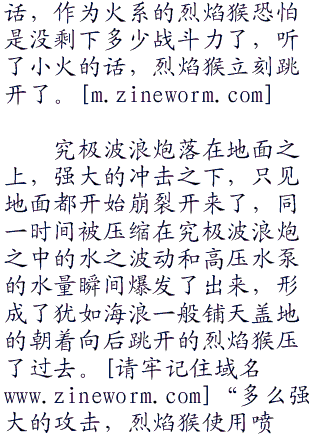 话，作为火系的烈焰猴恐怕
是没剩下多少战斗力了，听
了小火的话，烈焰猴立刻跳
开了。[m.zineworm.com]
究极波浪炮落在地面之
上，强大的冲击之下，只见
地面都开始崩裂开来了，同
一时间被压缩在究极波浪炮
之中的水之波动和高压水泵
的水量瞬间爆发了出来，形
成了犹如海浪一般铺天盖地
的朝着向后跳开的烈焰猴压
了过去。[请牢记住域名
www.zineworm.com]“多么强
大的攻击，烈焰猴使用喷